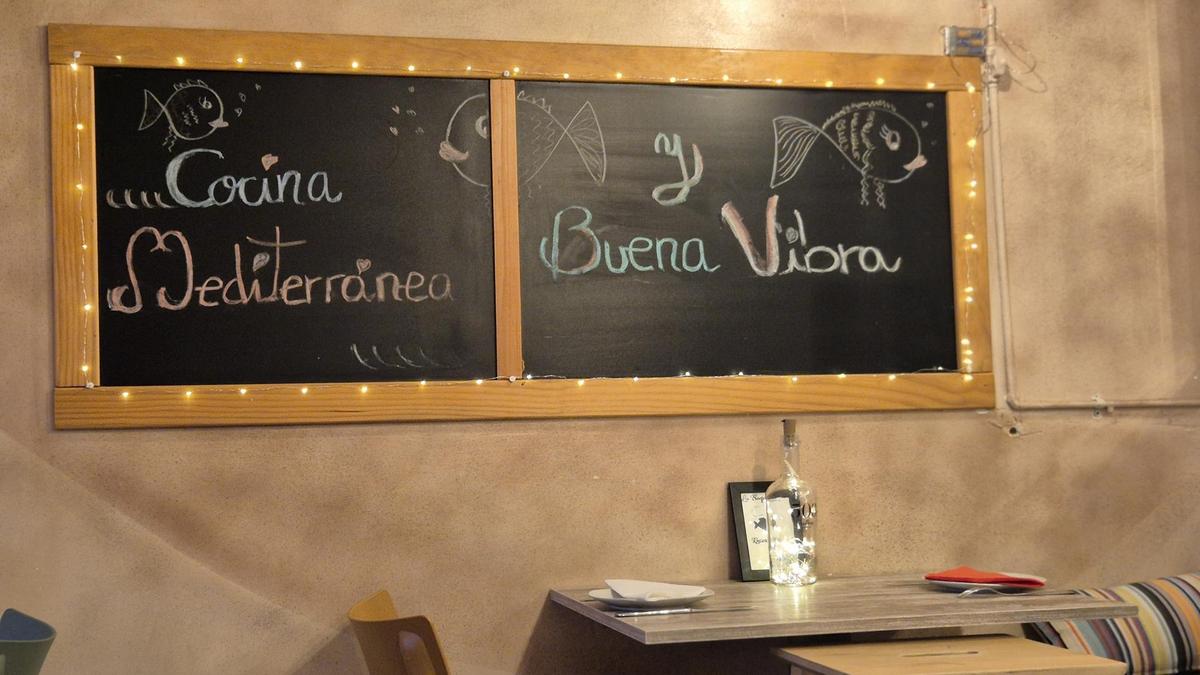 Cocina
Mediterránea
y
Buena Vibra